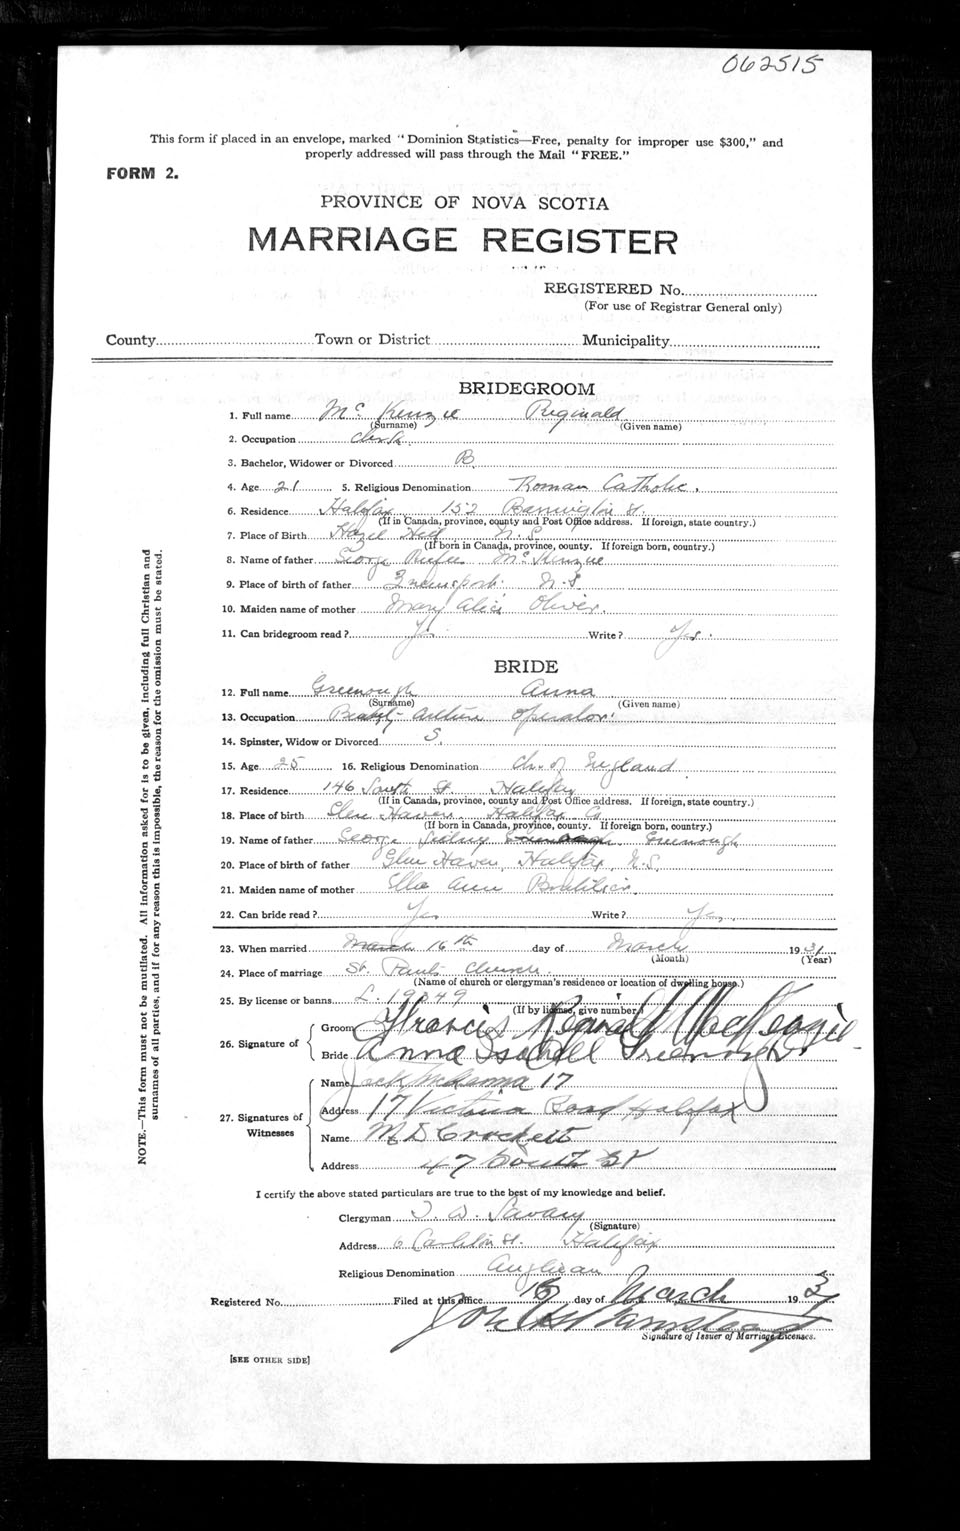 062515
This form if placed in an envelope, marked "Dominion Statistics—Free, penalty for improper use $300," and
properly addressed will pass through the Mail "FREE."
FORM 2.
PROVINCE OF NOVA SCOTIA
MARRIAGE REGISTER
REGISTERED No.
(For use of Registrar General only)
County Town or District Municipality
BRIDEGROOM
1. Full name McKenzie Reginald
(Surname) (Given name)
2. Occupation Clerk
3. Bachelor, Widower or Divorced B
4. Age 21 5. Religious Denomination Roman Catholic.
6. Residence Halifax 152 Barrington St.
(If in Canada, province, county and Post Office address. If foreign, state country.)
7. Place of Birth Hazel Hill N.S.
(If born in Canada, province, county. If foreign born, country.)
8. Name of father George Rufus McKenzie
9. Place of birth of father N.S.
10. Maiden name of mother Mary Alice Oliver.
11. Can bridegroom read? Yes Write? Yes.
BRIDE
12. Full name Greenough Anna
(Surname) (Given name)
13. Occupation Beauty-Culture Operator.
14. Spinster, Widow or Divorced S.
15. Age 25 16. Religious Denomination Ch. of England
17. Residence 146 South St. Halifax
(If in Canada, province, county and Post Office address. If foreign, state country.)
18. Place of birth Glen Haven Halifax Co
(If born in Canada, province, county. If foreign born, country.)
19. Name of father George Sidney Greenough
20. Place of birth of father Glen Haven, Halifax, N.S.
21. Maiden name of mother Ellie Ann Boutilier.
22. Can bride read? Yes Write? Yes.
23. When married March 16th day of March 1931
(Month) (Year)
24. Place of marriage St. Paul's Church
(Name of church or clergyman's residence or location of dwelling house.)
25. By license or banns L. 19049
(If by license, give number)
26. Signature of
Groom Francis Reginald MacKenzie
Bride Anna Isabell Greenough
27. Signatures of Witnesses
Name Jack McKenna 17
Address 17 Victoria Road Halifax
Name M D Crockett
Address 47 South St
I certify the above stated particulars are true to the best of my knowledge and belief.
Clergyman T. W. Savary
(Signature)
Address 6 Carleton St. Halifax
Religious Denomination Anglican
Registered No. Filed at this office day of March 193
Signature of Issuer of Marriage Licenses.
[SEE OTHER SIDE]
NOTE.—This form must not be mutilated. All information asked for is to be given, including full Christian and
surnames of all parties, and if for any reason this is impossible, the reason for the omission must be stated.